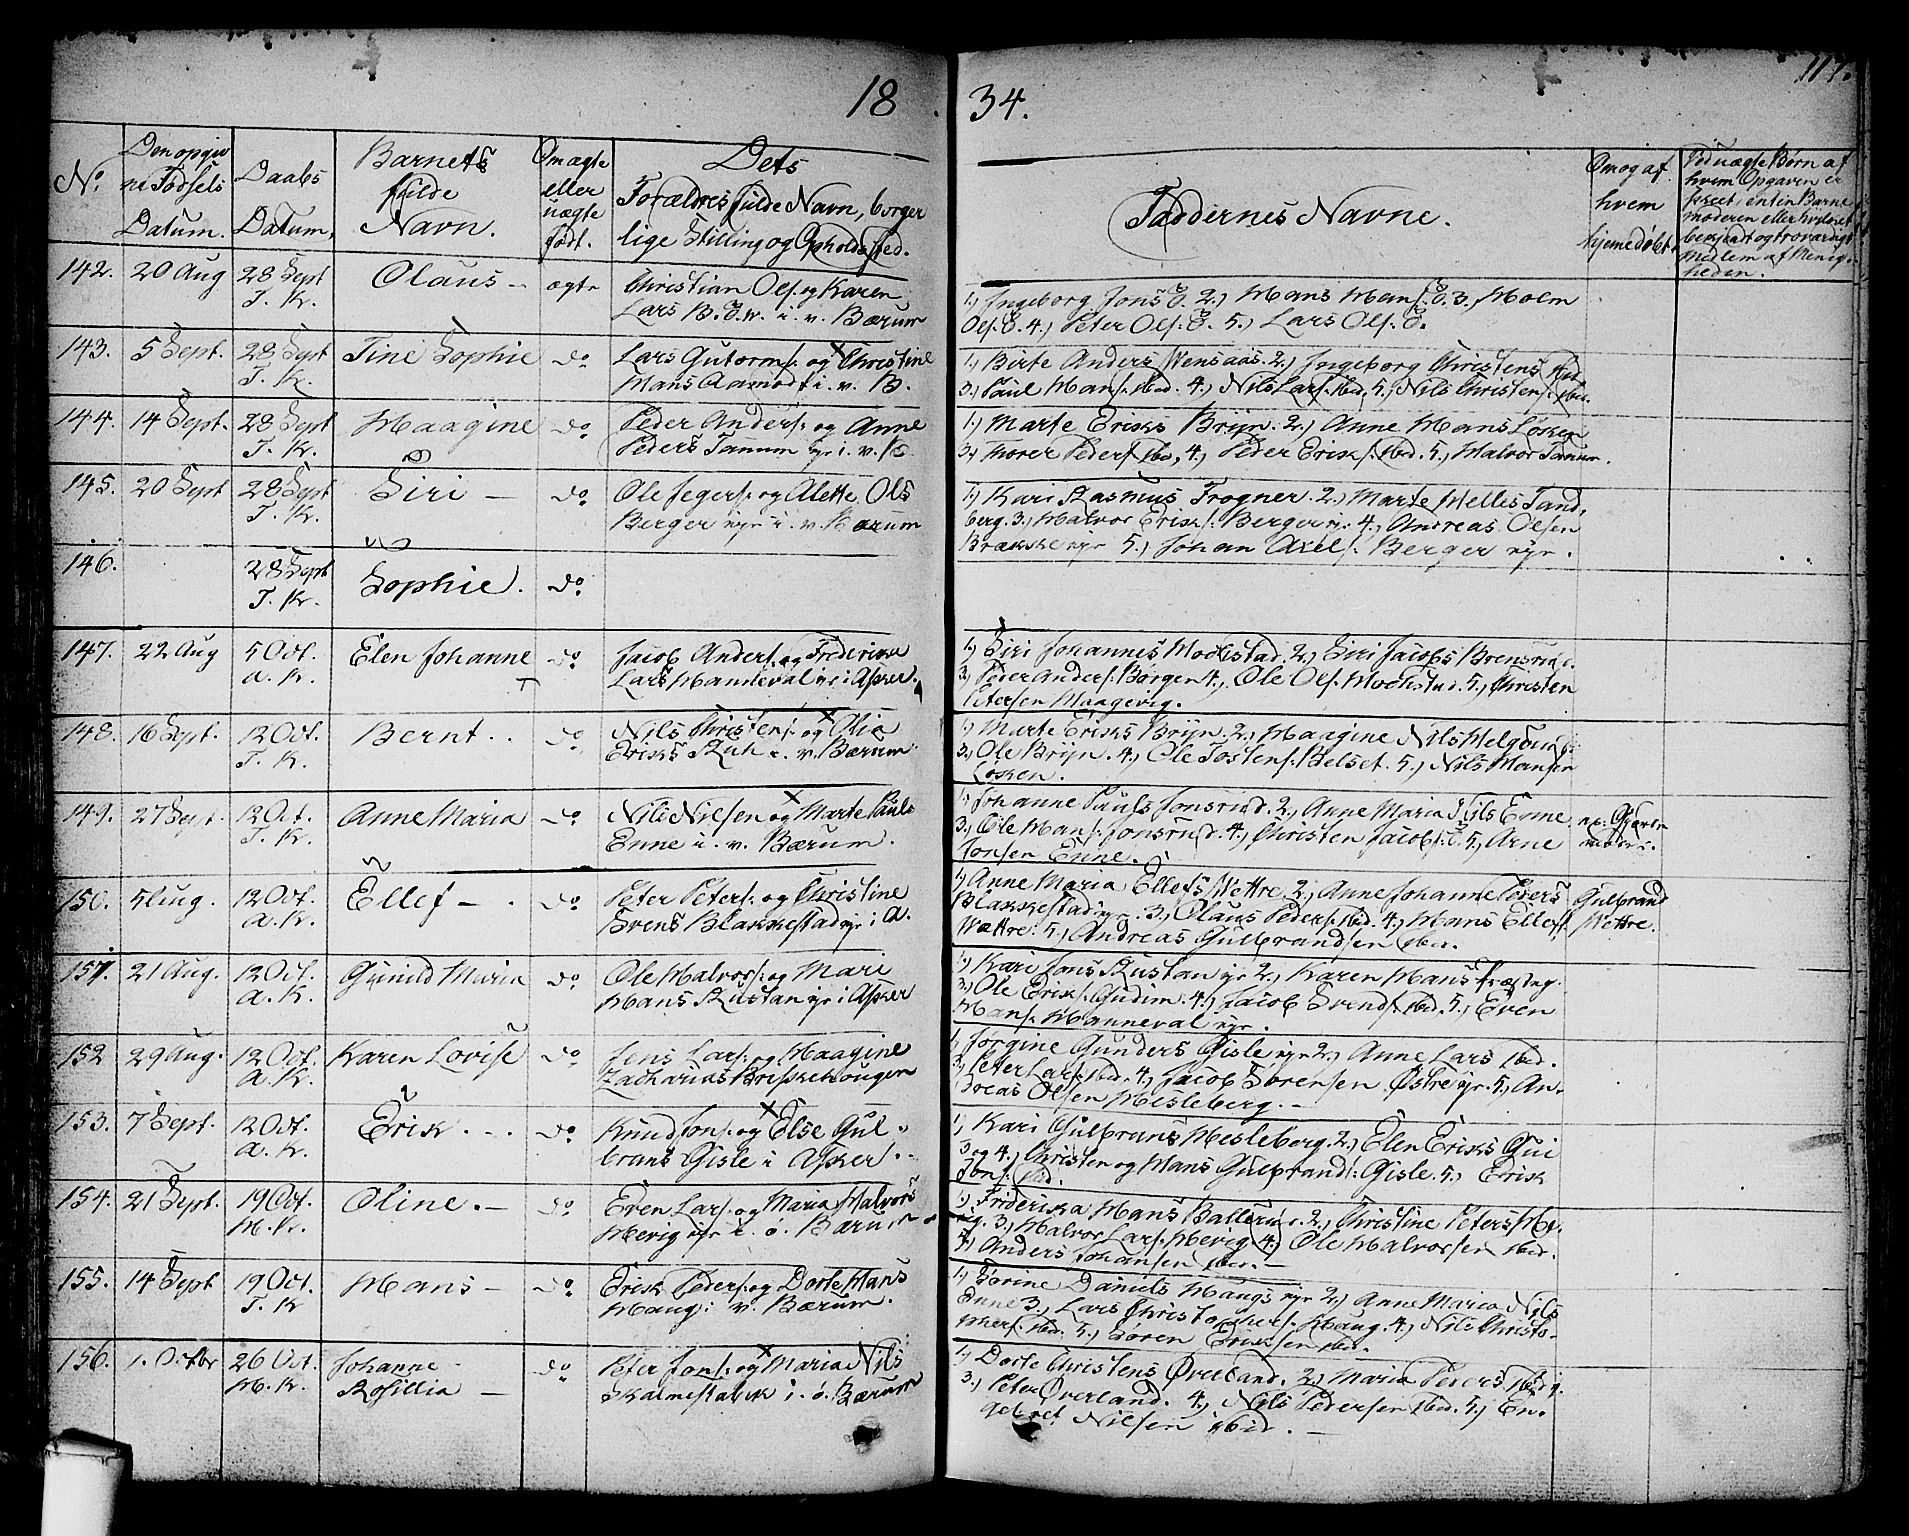 18 34.
117.
No. Den opgivne Fødsels Datum. Daabs Datum. Barnets fulde Navn. Om ægte eller uægte født. Dets Forældres fulde Navn, borgerlige Stilling og Opholdssted.
Faddernes Navne.
Om og af hvem hjemedøbt.
Ved uægte Børn af hvem Opgaven er skeet, enten Barnemoderen eller hvilket bekjendt og troværdigt Medlem af Menigheden.
142. 20 Aug 28 Sept T. K. Olaus – ægte Christian Ols. og Karen
Lars B. Ø. w. i. v. Bærum
1.) Ingeborg Jons Ø. 2.) Hans Hans. Ø. 3.) Holm
Ols. Ø. 4.) Peter Ols. Ø. 5.) Lars Ols. Ø.
143. 5 Sept. 28 Sept T. K. Tine Sophie do Lars Gutorms. og Christine
Hans Aamodt i. v. B.
1.) Birte Anders Wensaas. 2.) Ingeborg Christens ibid
3.) Paul Hans. ibid. 4.) Nils Lars. ibid. 5.) Nils Christens. ibid.
144. 14 Sept. 28 Sept T. K. Haagine do Peder Anders. og Anne
Peders Tanum yr i. v. B.
1.) Marte Eriks Brÿn. 2.) Anne Hans Løken
3.) Thorer Peders. ibd. 4.) Peder Eriks. ibid. 5.) Halvor Tanum.
145. 20 Sept 28 Sept T. K. Siri – do Ole Jegers. og Alette Ols
Berger yr i. v. Bærum
1.) Kari Rasmus Frogner. 2.) Marte Helles Sand.
berg. 3.) Halvor Eriks. Berger yr 4.) Andreas Olsen
Brækske yr 5.) Johan Axels. Berger yr.
146. 28 Sept T. K. Sophie. do
147. 22 Aug 5 Oct. a. K. Elen Johanne do Jacob Anders. og Frederikke
Lars Hanneval yr i Asker.
1.) Siri Johannes Mochstad. 2.) Siri Jacobs Brensrud.
3.) Peder Anders. Børgen 4.) Ole Ols. Mochstad. 5.) Christen
Petersen Haagevig.
148. 16 Sept. 12 Oct. T. K. Bernt. . do Nils Christens. og Olia
Eriks Ruh i. v. Bærum
1.) Marte Eriks Brÿn. 2.) Haagine Nils Helgerud
3.) Ole Brÿn. 4.) Ole Tostens. Belset. 5.) Nils Hansen
Løken.
149. 27 Sept. 12 Oct. T. K. Anne Maria do Nils Nilsen og Marte Pauls
Enne i. v. Bærum.
1.) Johanne Pauls Jonsrud. 2.) Anne Maria Nils Enne
3.) Ole Hans. Jonsrud. 4.) Christen Jacobs. Ø 5.) Arne
Jonsen Enne.
150. 5 Aug. 12 Oct. a. K. Ellef – . do Peter Peters. og Christine
Svens Blakkestad yr i A.
1.) Anne Maria Ellefs Wettre. 2.) Anne Johanne Peders
Blakkestad yr. 3.) Olaus Peders. ibd. 4.) Hans Ellefs.
Wettre. 5.) Andreas Gulbrandsen ibid.
Gulbrand Wettre.
151. 21 Aug. 12 Oct. a. K. Gunild Maria do Ole Halvors. og Mari
Hans Rustan yr i Asker
1.) Kari Jons Rustan yr 2.) Karen Hans
3.) Ole Eriks. Gudim. 4.) Jacob Svends. ibid. 5.) Even
Hans. Hanneval yr.
152 29 Aug. 12 Oct. a. K. Karen Lovise do Jens Lars. og Haagine
Zacharias Briskehougen
1.) Jørgine Gunders Gisle yr 2.) Anne Lars ibid.
3.) Peter Lars. ibid. 4.) Jacob Sørensen Østre yr. 5.) An-
dreas Olsen Hesleberg. –
153. 7 Sept. 12 Oct. a. K. Erik. . . do Knud Jons. og Else Gul-
brans Gisle i Asker. .
1.) Kari Gulbrans Hesleberg. 2.) Elen Eriks Gui
3 og 4.) Christen og Hans Gulbrands. Gisle. 5.) Erik
Jons. ibid.
154. 21 Sept. 19 Oct. H. K. Oline. – do Even Lars. og Maria Halvors
Høvig yr i. ø. Bærum
1.) Friderika Hans Ballerud. 2.) Christine Peters Hø-
vig. 3.) Halvor Lars. Høvig 4.) Ole Halvorsen ibid.
5.) Anders Johansen ibid. –
155. 14 Sept 19 Oct. T. K Hans – do Erik Peders. og Dorte Hans
Haug i v. Bærum.
1.) Sørine Daniels Haugs yr 2.) Anne Maria Nils
Enne 3.) Lars Christophers. Haug. 4.) Nils Christo-
phers. ibid. 5.) Søren Eriksen ibid.
156. 1. Octbr 26 Oct. H. K. Johanne
Rosillia – do Peter Jons. og Maria Nils
Skalmestabæk i. ø. Bærum
1.) Dorte Christens Øverland. 2.) Maria Peders ibid.
3.) Peter Øverland. 4.) Nils Pedersen ibid. 5.) En-
gebret Nilsen ibid. –